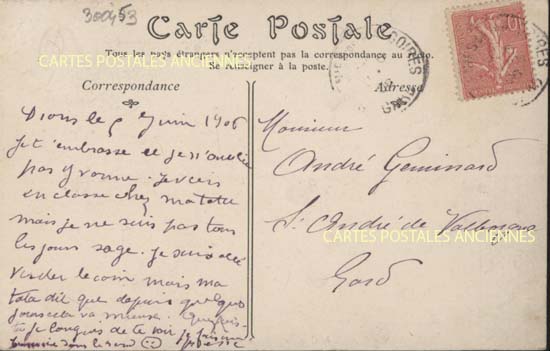 300453
Carte Postale
Tous les pays étrangers n'acceptent pas la correspondance au recto.
Se renseigner à la poste.
Correspondance
Adresse
CARTES POSTALES ANCIENNES
Dions le 5 Juin 1906
je t'embrasse et je n'oublie
pas Yvonne. Je vais
en classe chez ma tata
mais je ne suis pas tous
les jours sage. Je suis allé
le coin mais ma
tata dit que depuis quelques
jours cela va mieux.
tu je de te voir
dans le
Monsieur
André Geminard
St André de Valborgne
CARTES POSTALES ANCIENNES
Gard